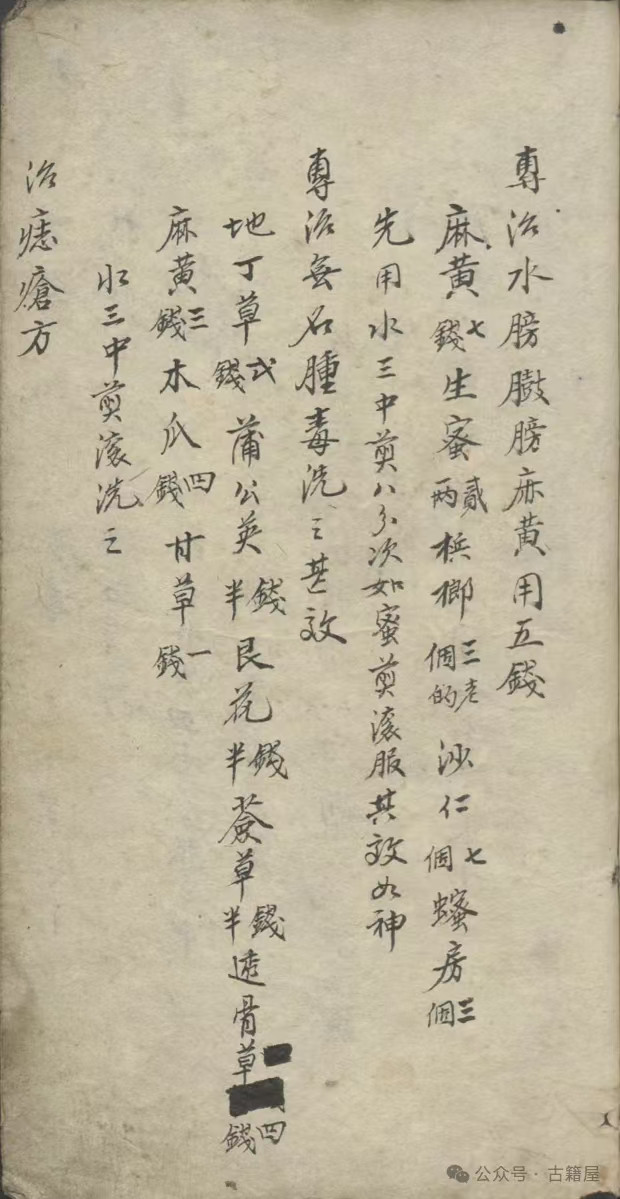 專治水膀臌膀麻黃用五錢
麻黃七錢生蜜貳兩梹榔三個老的沙仁七個蜜房三個
先用水三中煎八分次如蜜煎滾服其效如神
專治無名腫毒洗之甚效
地丁草弍錢蒲公英錢半艮花錢半薟草錢半透骨草四錢
麻黃三錢木瓜四錢甘草一錢
水三中煎滾洗之
治痣瘡方
公众号·古籍屋